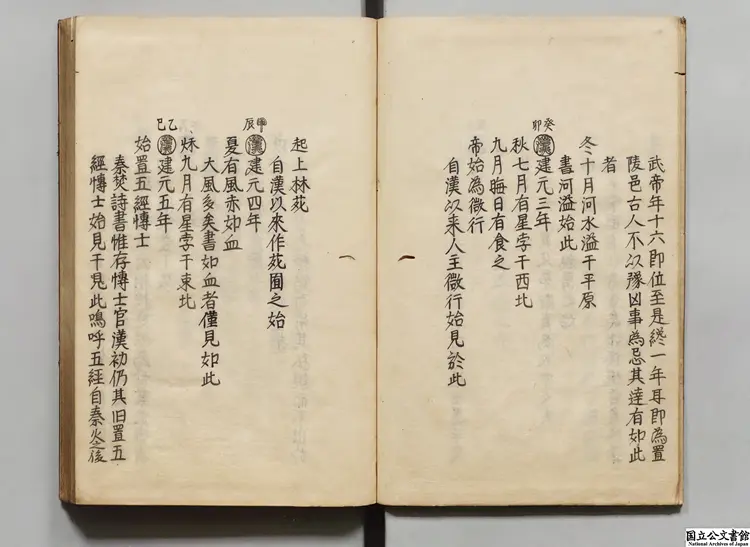 武帝年十六即位至是終一年耳即為置
陵邑古人不以豫凶事為忌其達有如此
者
冬十月河水溢于平原
書河溢始此
癸卯
漢建元三年
秋七月有星孛于西北
九月晦日有食之
帝始為微行
自漢以来人主微行始見於此
起上林苑
自漢以來作苑囿之始
甲辰
漢建元四年
夏有風赤如血
大風多矣書如血者僅見如此
秌九月有星孛于東北
乙巳
漢建元五年
始置五經博士
秦焚詩書惟存博士官漢初仍其旧置五
經博士始見于此嗚呼五經自秦火之後
国立公文書館
National Archives of Japan